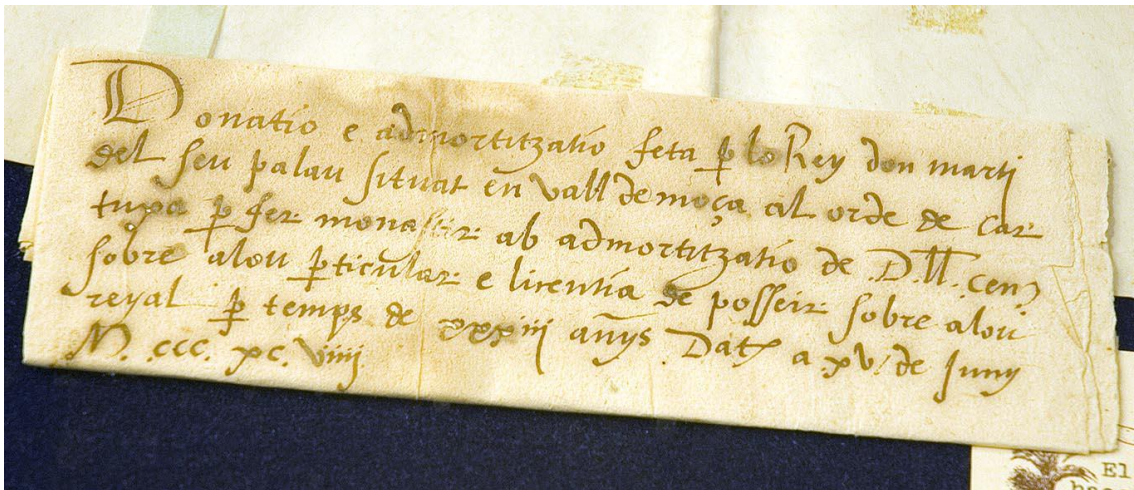 Donatio e admortitzatio feta p̱ lo Rey don marti
del seu palau situat en vall de moça al orde de Car
tuxa p̱ fer monastir ab admortitzatio de D. ll. cens
sobre alou p̱ticular e licentia de posseir sobre alou
reyal p̱ temps de xxxiiij anÿs Dat a xv. de Juny
M. ccc. xc. viiij
El